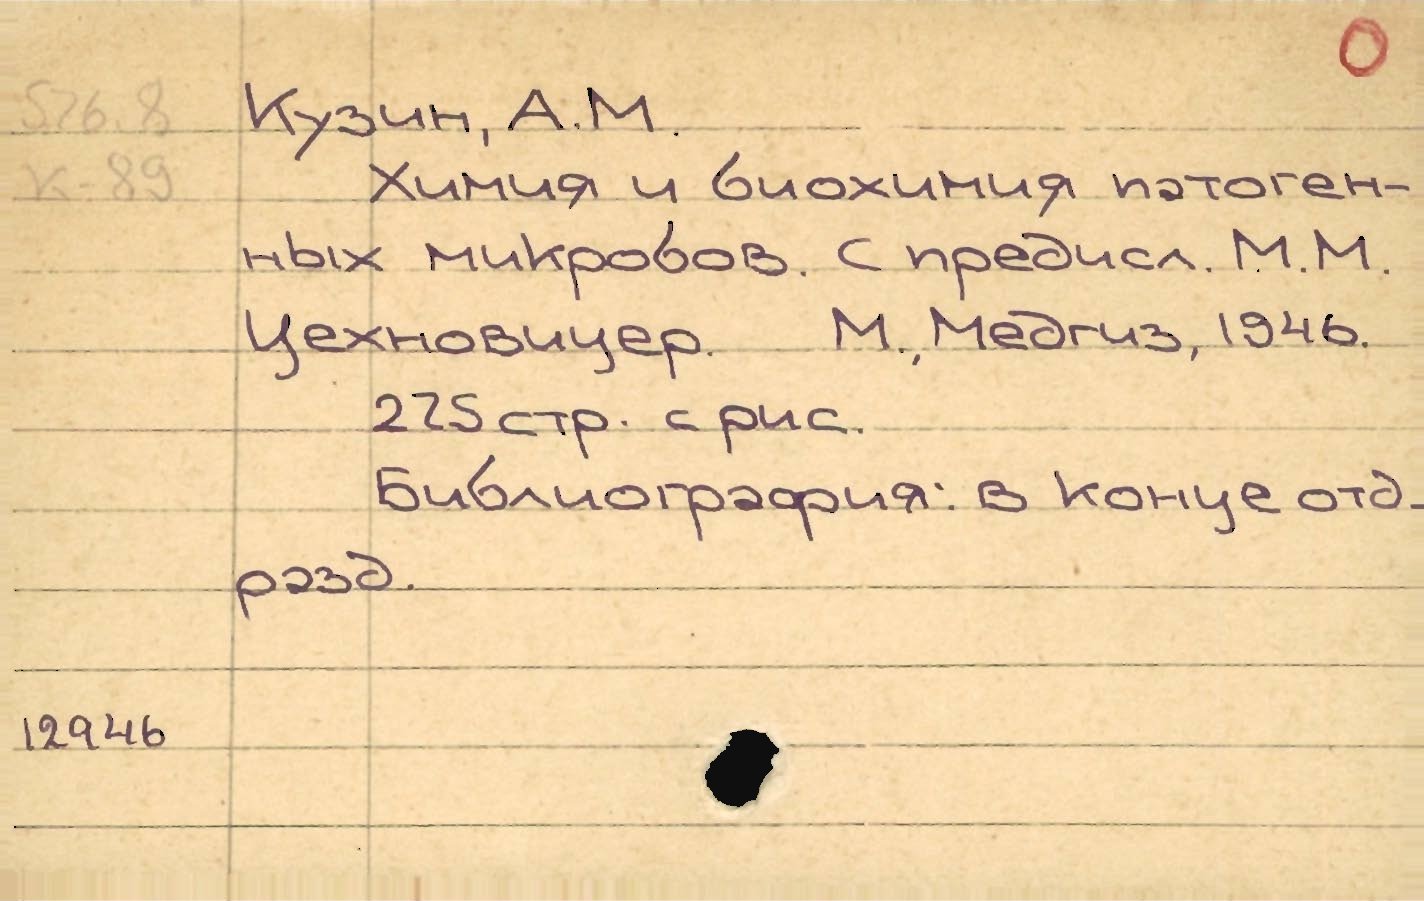 О
576.8 Кузин, А.М.
К-89 Химия и биохимия патоген-
ных микробов. С предисл. М.М.
Цехновицер. М., Медгиз, 1946.
275 стр. с рис.
Библиография: в конце отд.
разд.
12946